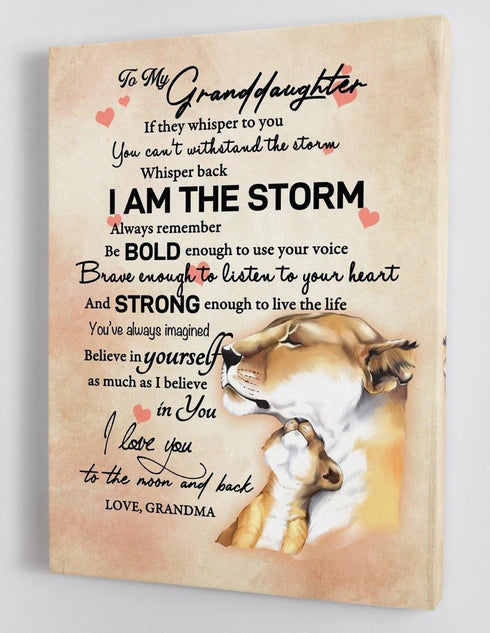 To My Granddaughter
If they whisper to you
You can't withstand the storm
Whisper back
I AM THE STORM
Always remember
Be BOLD enough to use your voice
Brave enough to listen to your heart
And STRONG enough to live the life
You've always imagined
Believe in yourself
as much as I believe
in You
I love you
to the moon and back
LOVE, GRANDMA